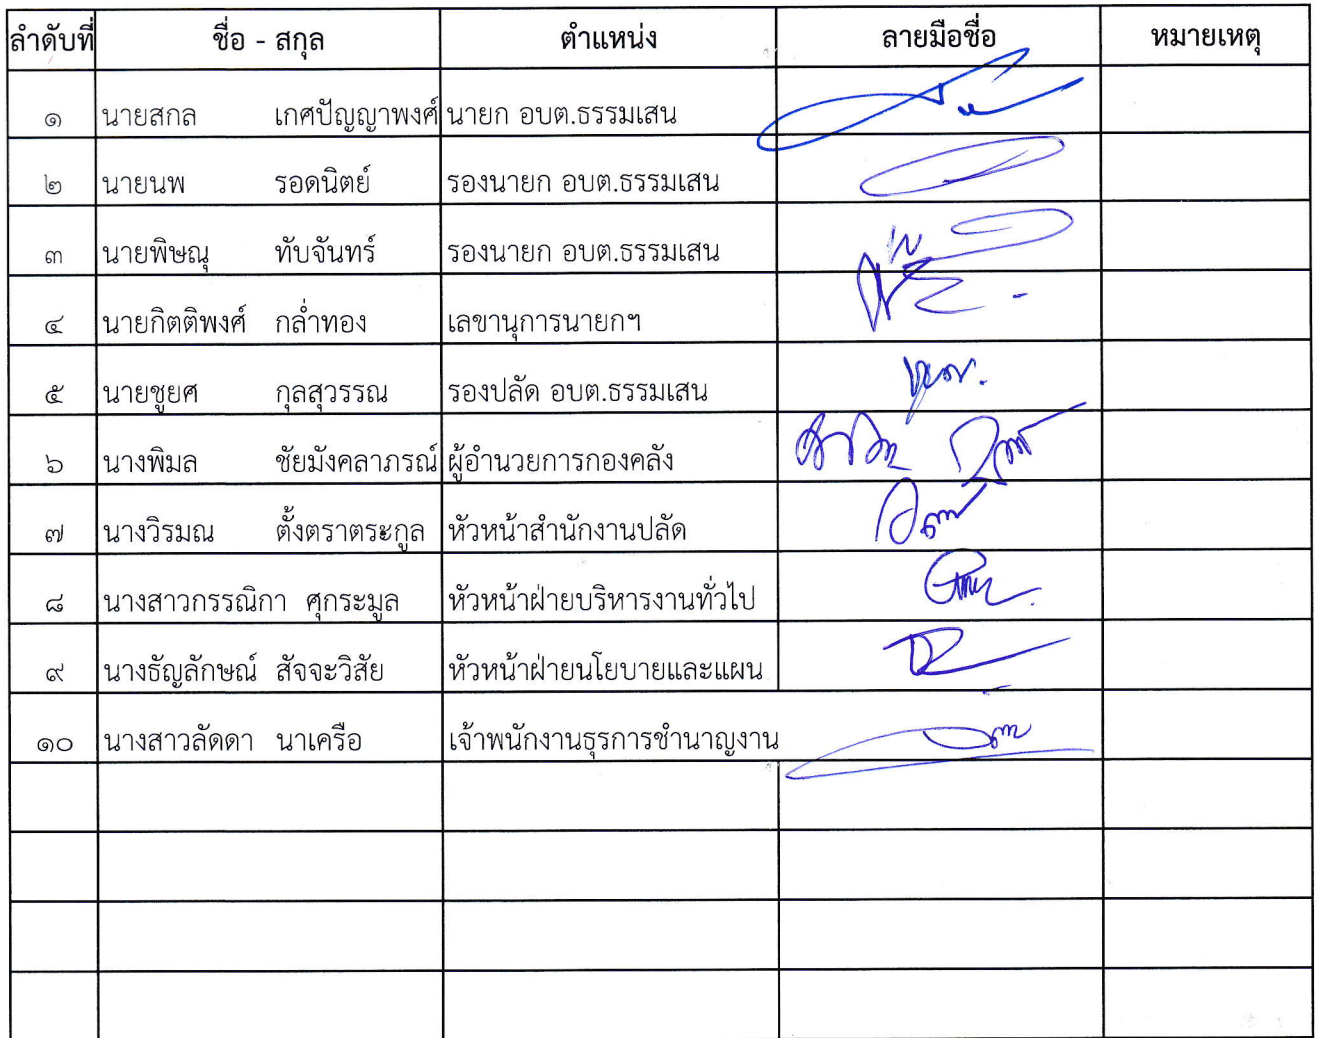 ลำดับที่ ชื่อ - สกุล ตำแหน่ง ลายมือชื่อ หมายเหตุ
๑ นายสกล เกศปัญญาพงศ์ นายก อบต.ธรรมเสน
๒ นายนพ รอดนิตย์ รองนายก อบต.ธรรมเสน
๓ นายพิษณุ ทับจันทร์ รองนายก อบต.ธรรมเสน
๔ นายกิตติพงศ์ กล่ำทอง เลขานุการนายกฯ
๕ นายชูยศ กุลสุวรรณ รองปลัด อบต.ธรรมเสน
๖ นางพิมล ชัยมังคลาภรณ์ ผู้อำนวยการกองคลัง
๗ นางวิรมณ ตั้งตราตระกูล หัวหน้าสำนักงานปลัด
๘ นางสาวกรรณิกา ศุกระมูล หัวหน้าฝ่ายบริหารงานทั่วไป
๙ นางธัญลักษณ์ สัจจะวิสัย หัวหน้าฝ่ายนโยบายและแผน
๑๐ นางสาวลัดดา นาเครือ เจ้าพนักงานธุรการชำนาญงาน